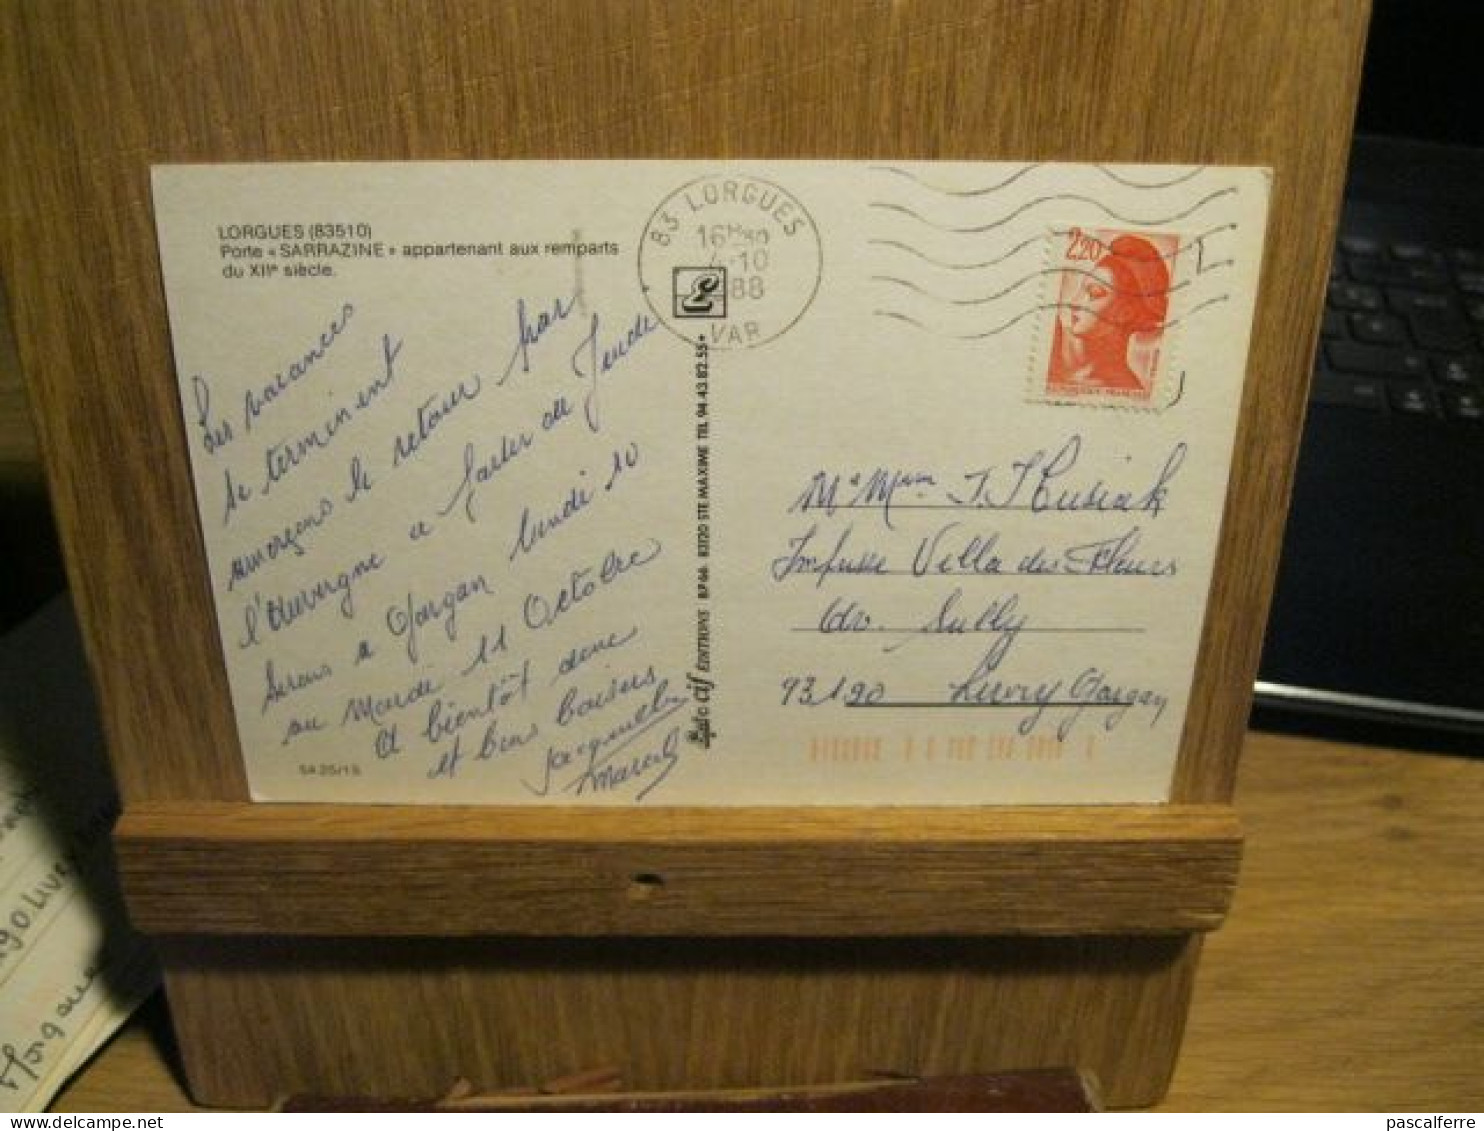 LORGUES (83510)
Porte « SARRAZINE » appartenant aux remparts
du XIIe siècle.
83 LORGUES
16H30
4-10
88
VAR
2,20
Les vacances
se terminent
amorçons le retour par
l'Auvergne a partir de Jeudi
Serons a Gargan lundi 10
ou Mardi 11 Octobre
A bientôt donc
et bons baisers
Jacqueline
Marcel
SA 25/15
ÉDITIONS B.P. 66 83120 STE MAXIME TEL 94 43.82.55+
Mr Mme J. Husiak
Impasse Villa des Fleurs
Av. Sully
93190 Livry Gargan
pascalferre